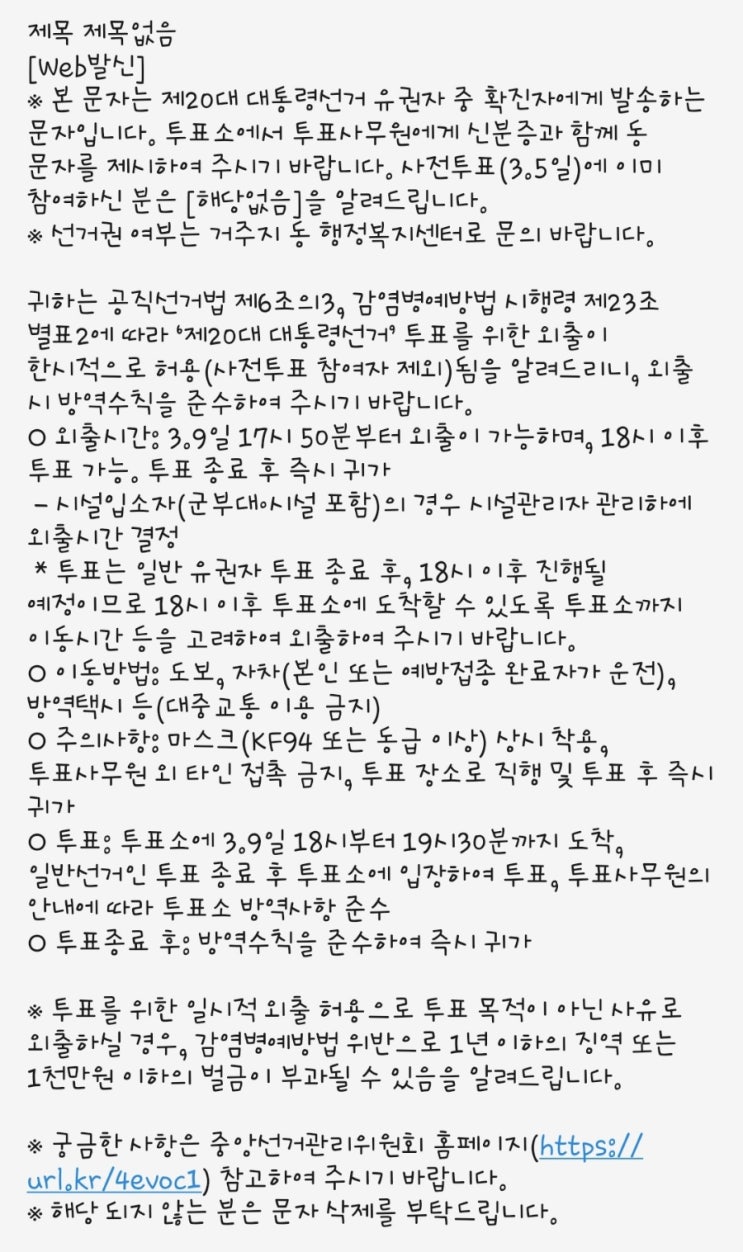 제목 제목없음
[Web발신]
※ 본 문자는 제20대 대통령선거 유권자 중 확진자에게 발송하는
문자입니다. 투표소에서 투표사무원에게 신분증과 함께 동
문자를 제시하여 주시기 바랍니다. 사전투표(3.5일)에 이미
참여하신 분은 [해당없음]을 알려드립니다.
※ 선거권 여부는 거주지 동 행정복지센터로 문의 바랍니다.

귀하는 공직선거법 제6조의3, 감염병예방법 시행령 제23조
별표2에 따라 '제20대 대통령선거' 투표를 위한 외출이
한시적으로 허용(사전투표 참여자 제외)됨을 알려드리니, 외출
시 방역수칙을 준수하여 주시기 바랍니다.
○ 외출시간: 3.9일 17시 50분부터 외출이 가능하며, 18시 이후
투표 가능. 투표 종료 후 즉시 귀가
- 시설입소자(군부대시설 포함)의 경우 시설관리자 관리하에
외출시간 결정
* 투표는 일반 유권자 투표 종료 후, 18시 이후 진행될
예정이므로 18시 이후 투표소에 도착할 수 있도록 투표소까지
이동시간 등을 고려하여 외출하여 주시기 바랍니다.
○ 이동방법: 도보, 자차(본인 또는 예방접종 완료자가 운전),
방역택시 등(대중교통 이용 금지)
○ 주의사항: 마스크(KF94 또는 동급 이상) 상시 착용,
투표사무원 외 타인 접촉 금지, 투표 장소로 직행 및 투표 후 즉시
귀가
○ 투표: 투표소에 3.9일 18시부터 19시30분까지 도착,
일반선거인 투표 종료 후 투표소에 입장하여 투표, 투표사무원의
안내에 따라 투표소 방역사항 준수
○ 투표종료 후: 방역수칙을 준수하여 즉시 귀가

※ 투표를 위한 일시적 외출 허용으로 투표 목적이 아닌 사유로
외출하실 경우, 감염병예방법 위반으로 1년 이하의 징역 또는
1천만원 이하의 벌금이 부과될 수 있음을 알려드립니다.

※ 궁금한 사항은 중앙선거관리위원회 홈페이지(https://
url.kr/4evoc1) 참고하여 주시기 바랍니다.
※ 해당 되지 않는 분은 문자 삭제를 부탁드립니다.